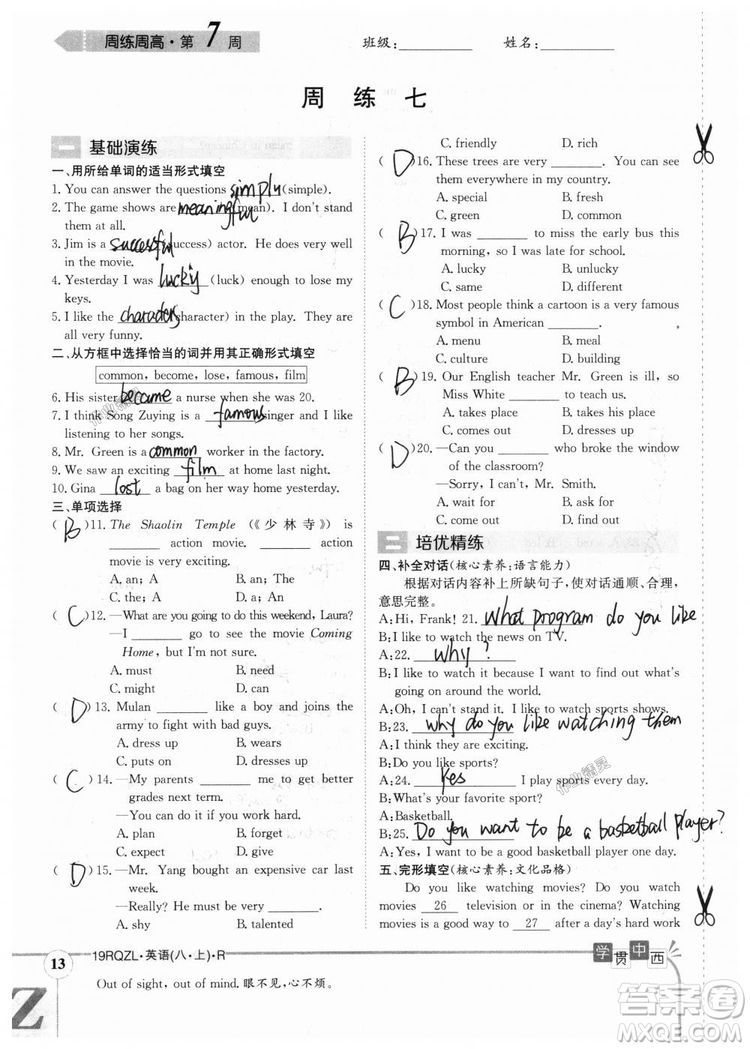 周练周高·第7周
班级:________ 姓名:________
周 练 七
一 基础演练
一、用所给单词的适当形式填空
1. You can answer the questions simply (simple).
2. The game shows are meaningful (mean). I don't stand
them at all.
3. Jim is a successful (success) actor. He does very well
in the movie.
4. Yesterday I was lucky (luck) enough to lose my
keys.
5. I like the characters (character) in the play. They are
all very funny.
二、从方框中选择恰当的词并用其正确形式填空
common, become, lose, famous, film
6. His sister became a nurse when she was 20.
7. I think Song Zuying is a famous singer and I like
listening to her songs.
8. Mr. Green is a common worker in the factory.
9. We saw an exciting film at home last night.
10. Gina lost a bag on her way home yesterday.
三、单项选择
( B )11. The Shaolin Temple (《少林寺》) is
________ action movie. ________ action
movie is very exciting.
A. an; A B. an; The
C. the; A D. a; An
( C )12. —What are you going to do this weekend, Laura?
—I ________ see the movie Coming
Home, but I'm not sure.
A. must B. need
C. might D. can
( D )13. Mulan ________ like a boy and joins the
army to fight with bad guys.
A. dress up B. wears
C. puts on D. dresses up
( C )14. —My parents ________ me to get better
grades next term.
—You can do it if you work hard.
A. plan B. forget
C. expect D. give
( D )15. —Mr. Yang bought an expensive car last
week.
—Really? He must be very ________.
A. shy B. talented
C. friendly D. rich
( D )16. These trees are very ________. You can see
them everywhere in my country.
A. special B. fresh
C. green D. common
( B )17. I was ________ to miss the early bus this
morning, so I was late for school.
A. lucky B. unlucky
C. same D. different
( C )18. Most people think a cartoon is a very famous
symbol in American ________.
A. menu B. meal
C. culture D. building
( B )19. Our English teacher Mr. Green is ill, so
Miss White ________ to teach us.
A. takes place B. takes his place
C. comes out D. dresses up
( D )20. —Can you ________ who broke the window
of the classroom?
—Sorry, I can't, Mr. Smith.
A. wait for B. ask for
C. come out D. find out
二 培优精练
四、补全对话(核心素养:语言能力)
根据对话内容补上所缺句子,使对话通顺、合理,
意思完整。
A: Hi, Frank! 21. What program do you like
B: I like to watch the news on TV.
A: 22. Why?
B: I like to watch it because I want to find out what's
going on around the world.
A: Oh, I can't stand it. I like to watch sports shows.
B: 23. why do you like watching them
A: I like them because I think they are exciting.
B: Do you like sports?
A: 24. Yes I play sports every day.
B: What's your favorite sport?
A: Basketball.
B: 25. Do you want to be a basketball player?
A: Yes, I want to be a good basketball player one day.
五、完形填空(核心素养:文化品格)
Do you like watching movies? Do you watch
movies 26 television or in the cinema? Watching
movies is a good way to 27 after a day's hard work
13
19RQZL·英语(八·上)·R
学贯中西
Out of sight, out of mind. 眼不见,心不烦。
Z
答案卷
MXQE.COM